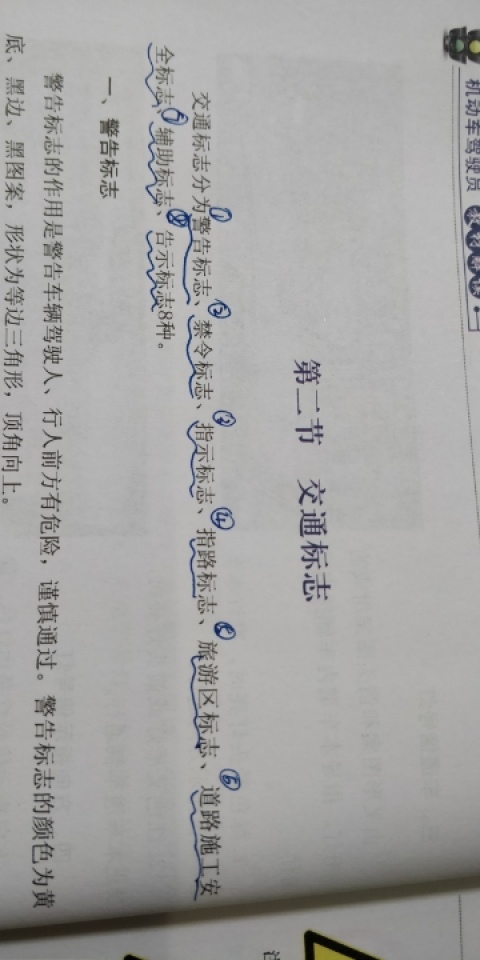 机动车驾驶员
第二节 交通标志
交通标志分为警告标志、禁令标志、指示标志、指路标志、旅游区标志、道路施工安
全标志、辅助标志、告示标志8种。
一、警告标志
警告标志的作用是警告车辆驾驶人、行人前方有危险，谨慎通过。警告标志的颜色为黄
底、黑边、黑图案，形状为等边三角形，顶角向上。